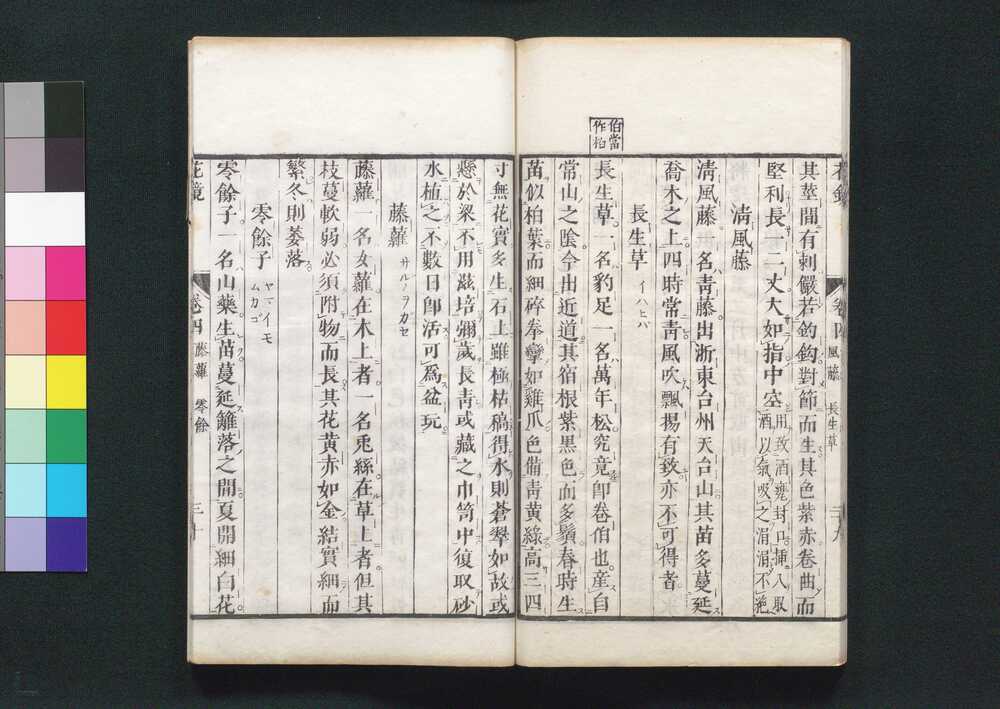 伯當
作栢
其莖間有刺儼若釣鈎對節而生其色紫赤卷曲而
堅利長一二丈大如指中空用致酒甕封口插入取
酒以氣吸之涓涓不絶
清風藤
清風藤一名靑藤出浙東台州天台山其苗多蔓延
喬木之上四時常靑風吹飄揚有致亦不可得者
長生草 イハヒバ
長生草一名豹足一名萬年松究竟卽卷伯也產自
常山之陰今出近道其宿根紫黑色而多鬚春時生
苗似柏葉而細碎拳攣如雞爪色備靑黃綠高三四
寸無花實多生石上雖極枯稿得水則蒼翠如故或
懸於梁不用滋培彌歲長靑或藏之巾笥中復取砂
水植之不數日卽活可爲盆玩
藤蘿 サルノヲガセ
藤蘿一名女蘿在木上者一名兎絲在草上者但其
枝蔓軟弱必須附物而長其花黃赤如金結實細而
繁冬則萎落
零餘子 ヤマイモ
ムカゴ
零餘子一名山藥生苗蔓延籬落之間夏開細白花
花鏡 卷四 藤蘿 零餘 三十